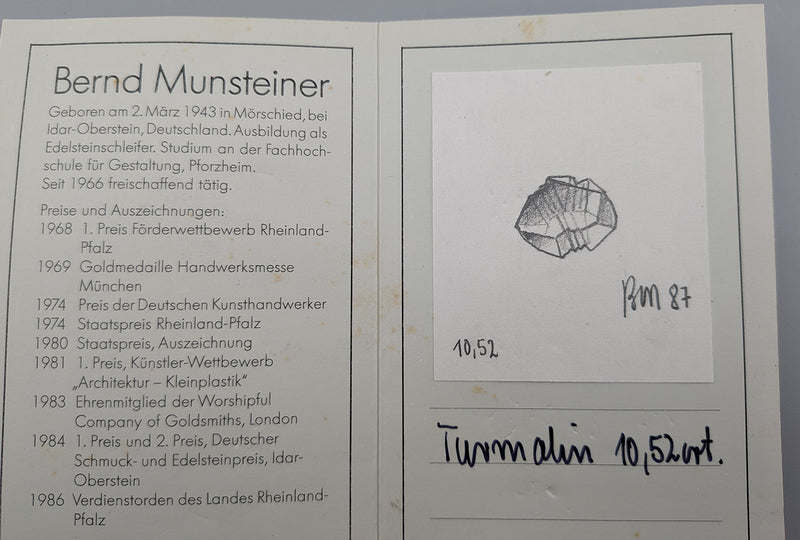 Bernd Munsteiner
Geboren am 2. März 1943 in Mörschied, bei
Idar-Oberstein, Deutschland. Ausbildung als
Edelsteinschleifer. Studium an der Fachhoch-
schule für Gestaltung, Pforzheim.
Seit 1966 freischaffend tätig.
Preise und Auszeichnungen:
1968 1. Preis Förderwettbewerb Rheinland-
Pfalz
1969 Goldmedaille Handwerksmesse
München
1974 Preis der Deutschen Kunsthandwerker
1974 Staatspreis Rheinland-Pfalz
1980 Staatspreis, Auszeichnung
1981 1. Preis, Künstler-Wettbewerb
„Architektur – Kleinplastik“
1983 Ehrenmitglied der Worshipful
Company of Goldsmiths, London
1984 1. Preis und 2. Preis, Deutscher
Schmuck- und Edelsteinpreis, Idar-
Oberstein
1986 Verdienstorden des Landes Rheinland-
Pfalz
BM 87
10,52
Turmalin 10,52 crt.